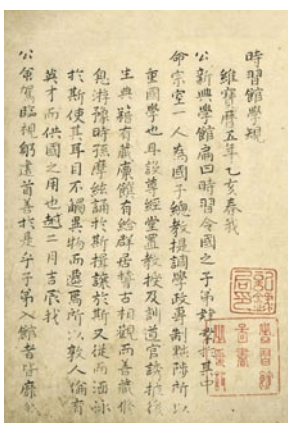 時習館學規
維寶曆五年乙亥春我
公新興學館扁曰時習令國之子弟肄業於其中
命宗室一人為國子總教提調學政專制黜陟所以
重國學也且設尊經堂置教授及訓導官讓於後
生典籍有藏廩餼有給群居稽古相觀而善藏修
息游豫時孫摩絃誦於斯揖讓於斯又從而涵泳
於斯使其耳目不觸異物而遷焉所以敦人倫育
英才而供國之用也越二月吉辰我
公命駕臨視躬遣首善於是乎子弟入館者皆靡